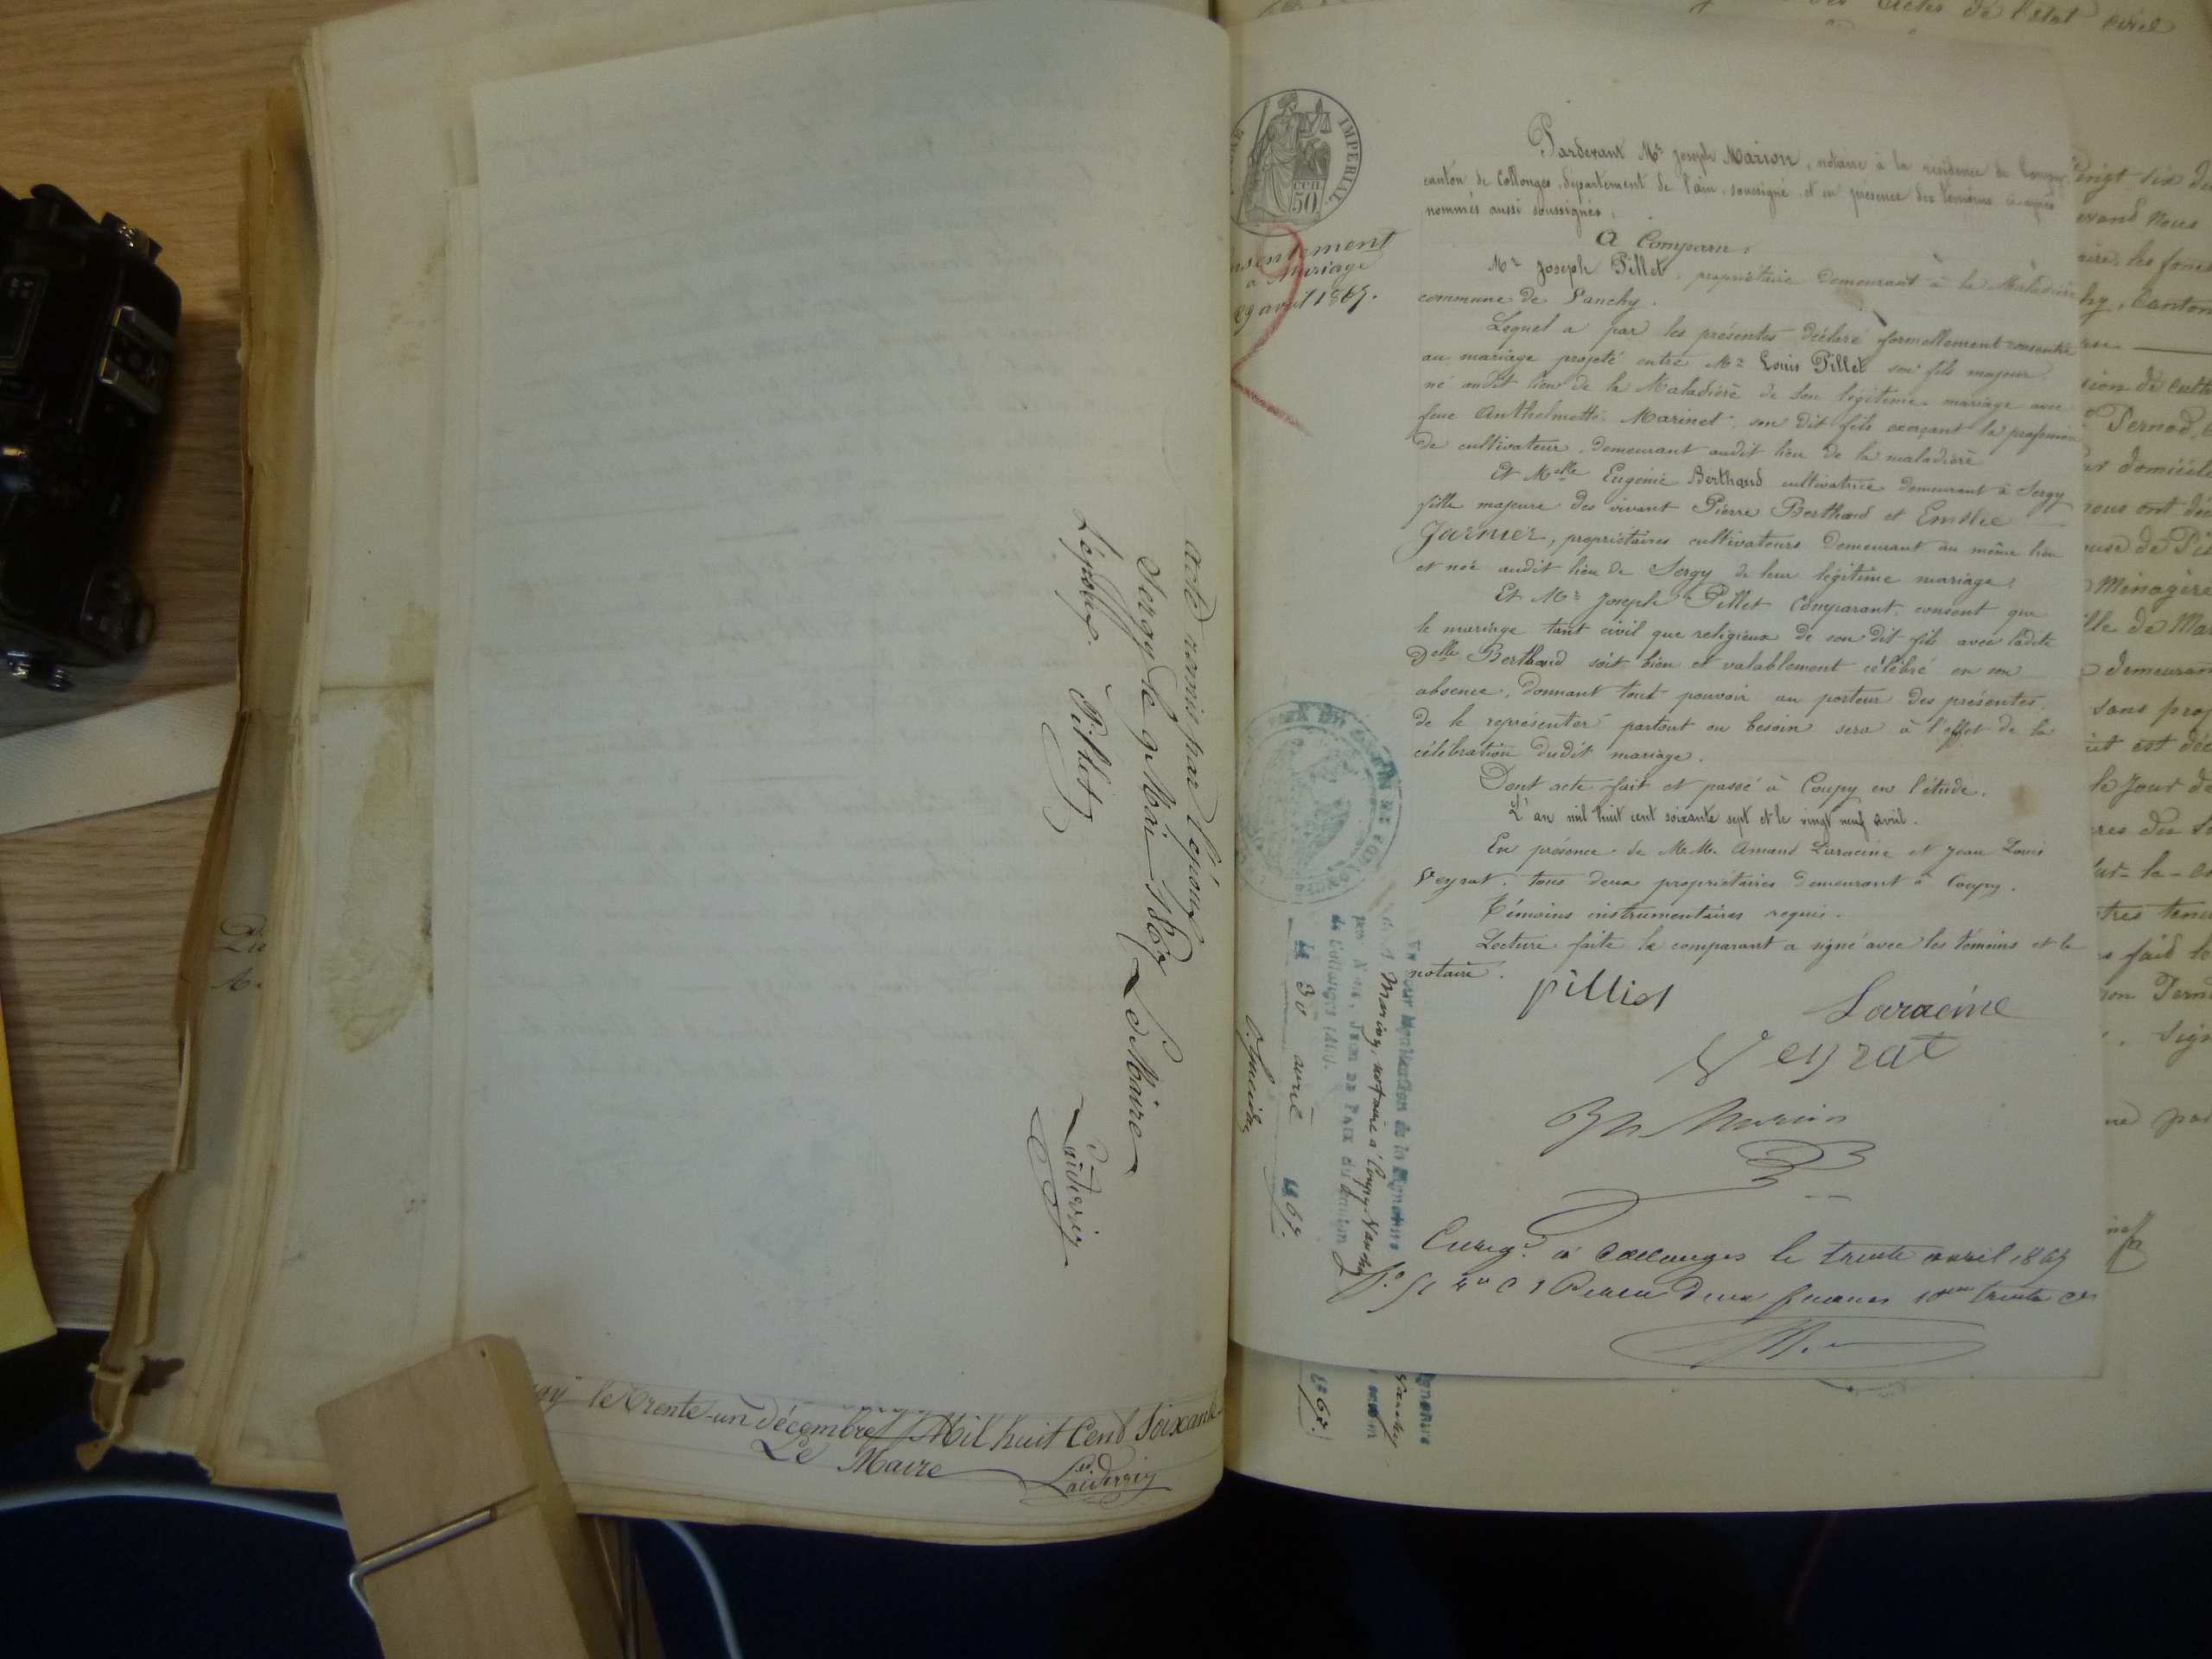 acte remis par l'époux
Sergy le 9 Mai 1867
L'époux Le Maire
Pillet
Laidevoix
le trente-un décembre Mil huit Cent Soixante
Le Maire
IMPERIAL
50
mariage
29 avril 1867.
Pardevant Me Joseph Marion, notaire à la résidence de
canton de Collonges, département de l'ain, soussigné et en présence des témoins ci après
nommés aussi soussignés,
A Comparu.
Mr Joseph Pillet, propriétaire demeurant à la Maladière
commune de Vanchy.
Lequel a par les présentes déclaré formellement consentir
au mariage projeté entre Mr Louis Pillet son fils majeur
né audit lieu de la Maladière de son légitime mariage avec
feue Anthelmette Marinet, son dit fils exerçant la profession
de cultivateur, demeurant audit lieu de la maladière
Et Melle Eugénie Berthaud cultivatrice demeurant à Sergy
fille majeure des vivant Pierre Berthaud et Emilie
Jarnier, propriétaires cultivateurs demeurant au même lieu
et née audit lieu de Sergy de leur légitime mariage.
Et Mr Joseph Pillet Comparant consent que
le mariage tant civil que religieux de son dit fils avec ladite
Delle Berthaud soit bien et valablement célébré en son
absence, donnant tout pouvoir au porteur des présentes
de le représenter partout ou besoin sera à l'effet de la
célébration dudit mariage.
Dont acte fait et passé à Coupy en l'étude.
L'an mil huit cent soixante sept et le vingt neuf avril.
En présence de M.M. Amand Laracine et Jean Louis
Veyrat, tous deux propriétaires demeurant à Coupy.
Témoins instrumentaires requis.
Lecture faite le comparant a signé avec les témoins et le
notaire.
pilliet
Laracine
Veyrat
Marion
Enregé à Collonges le trente avril 1867
Vu pour légalisation de la signature
de Me Marion, notaire à Coupy-Vanchy
par Nous, Juge de Paix du canton
de Collonges (Ain).
Le 30 avril 1867.
des Actes de l'état civil
Vingt six du
evant nous
hy, Canton
Pernod,
domicile
nous ont déc
Ménagère
lle de Mar
demeuran
sans prof
est déc
le jour de
fait le
Sign